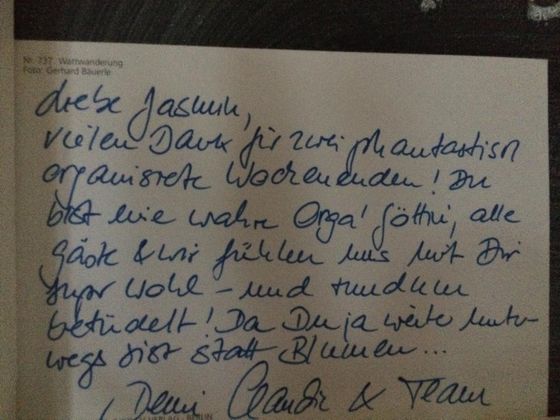 Nr. 737 Wattwanderung
Foto: Gerhard Bäuerle
Liebe Jasmin,
vielen Dank für zwei phantastisch
organisierte Wochenenden! Du
bist eine wahre Orga' Göttin, alle
Gäste & wir fühlen uns mit Dir
super wohl – und rundum
betüdelt! Da Du ja weiter unter-
wegs bist statt Blumen...
Claudia & Team
VERLAG · BERLIN